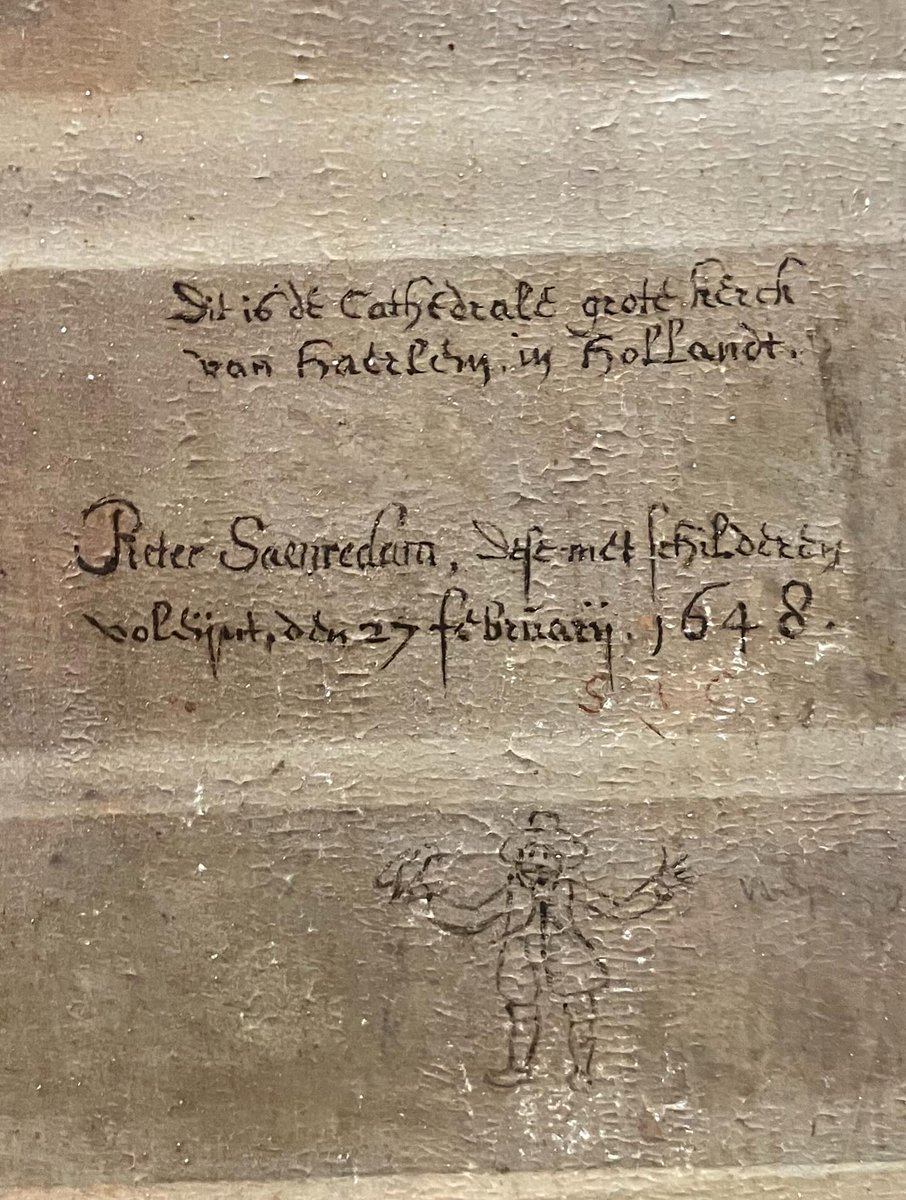 Dit is de Cathedrale grote kerck
van Haerlem, in Hollandt.
Pieter Saenredam, dese met schilderen
voleijnt, den 27 februarij. 1648.
S I C